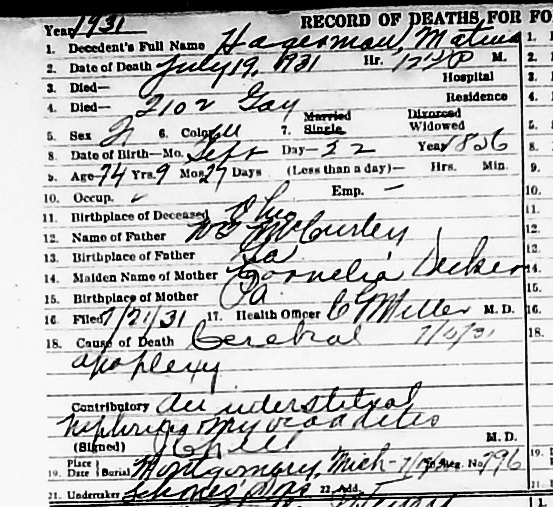 Year 1931 RECORD OF DEATHS FOR FO
1. Decedent's Full Name Hagerman,
2. Date of Death July 19, 1931 Hr. M.
3. Died— Hospital
4. Died— 2102 Gay Residence
5. Sex 6. Color 7. Married Single Divorced Widowed
8. Date of Birth—Mo. Sept Day—22 Year 1856
9. Age—74 Yrs. 9 Mos. 27 Days (Less than a day)— Hrs. Min.
10. Occup. Emp. —
11. Birthplace of Deceased Ohio
12. Name of Father McCurley
13. Birthplace of Father Pa
14. Maiden Name of Mother Cornelia Decker
15. Birthplace of Mother Pa
16. Filed 7/21/31 17. Health Officer Miller M. D.
18. Cause of Death Cerebral
apoplexy
Contributory interstitial
(Signed) M. D.
19. Place Date Burial Montgomery, Mich— No. 796
21. Undertaker Sons 22. Add.